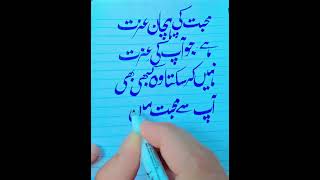 محبت کی پہچان عزت
ہے جو آپ کی عزت
نہیں کر سکتا وہ کبھی بھی
آپ سے محبت